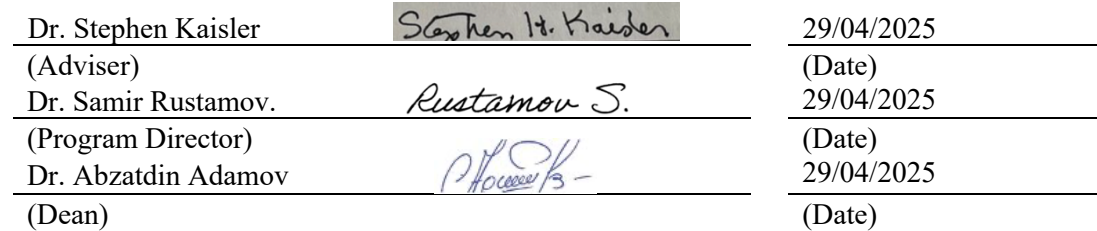 Dr. Stephen Kaisler Stephen H. Kaisler 29/04/2025
(Adviser) (Date)
Dr. Samir Rustamov. Rustamov S. 29/04/2025
(Program Director) (Date)
Dr. Abzatdin Adamov 29/04/2025
(Dean) (Date)